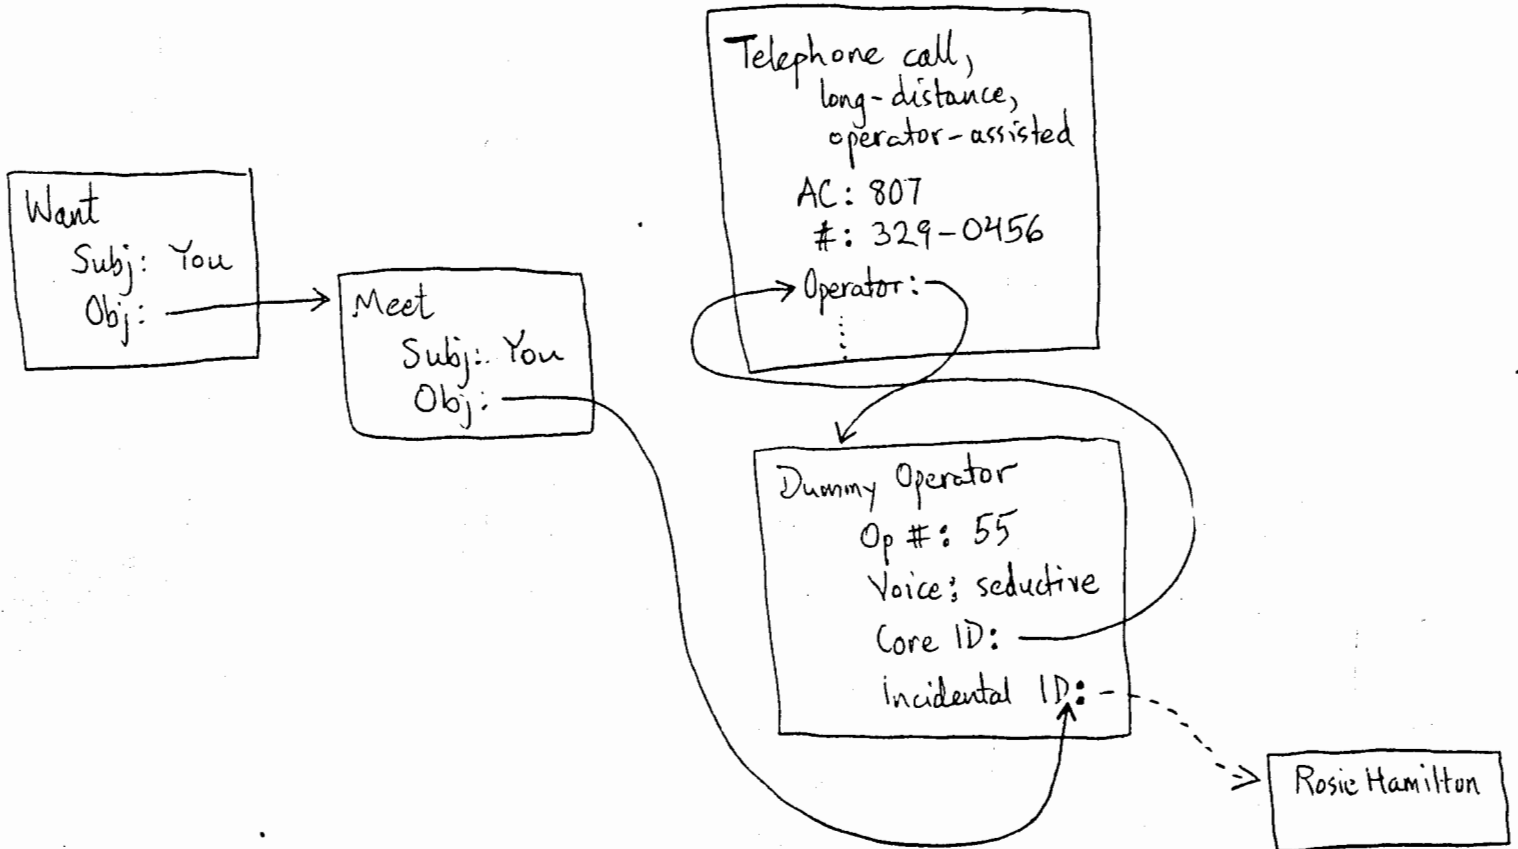 Want
Subj: You
Obj:
Meet
Subj: You
Obj:
Telephone call,
long-distance,
operator-assisted
AC: 807
#: 329-0456
Operator:
Dummy Operator
Op #: 55
Voice: seductive
Core ID:
Incidental ID:
Rosie Hamilton